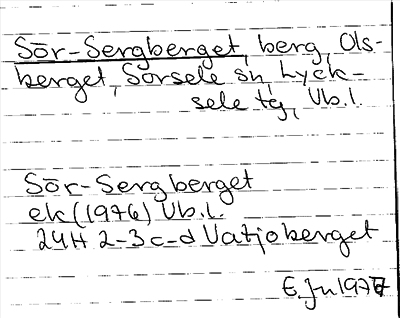 Sör-Sergberget, berg, Ols-
berget, Sorsele sn, Lyck-
sele tg, Vb.l.
Sör-Sergberget
ek (1976) Vb.l.
24H 2-3c-d Vatjoberget
E.Ju 1977